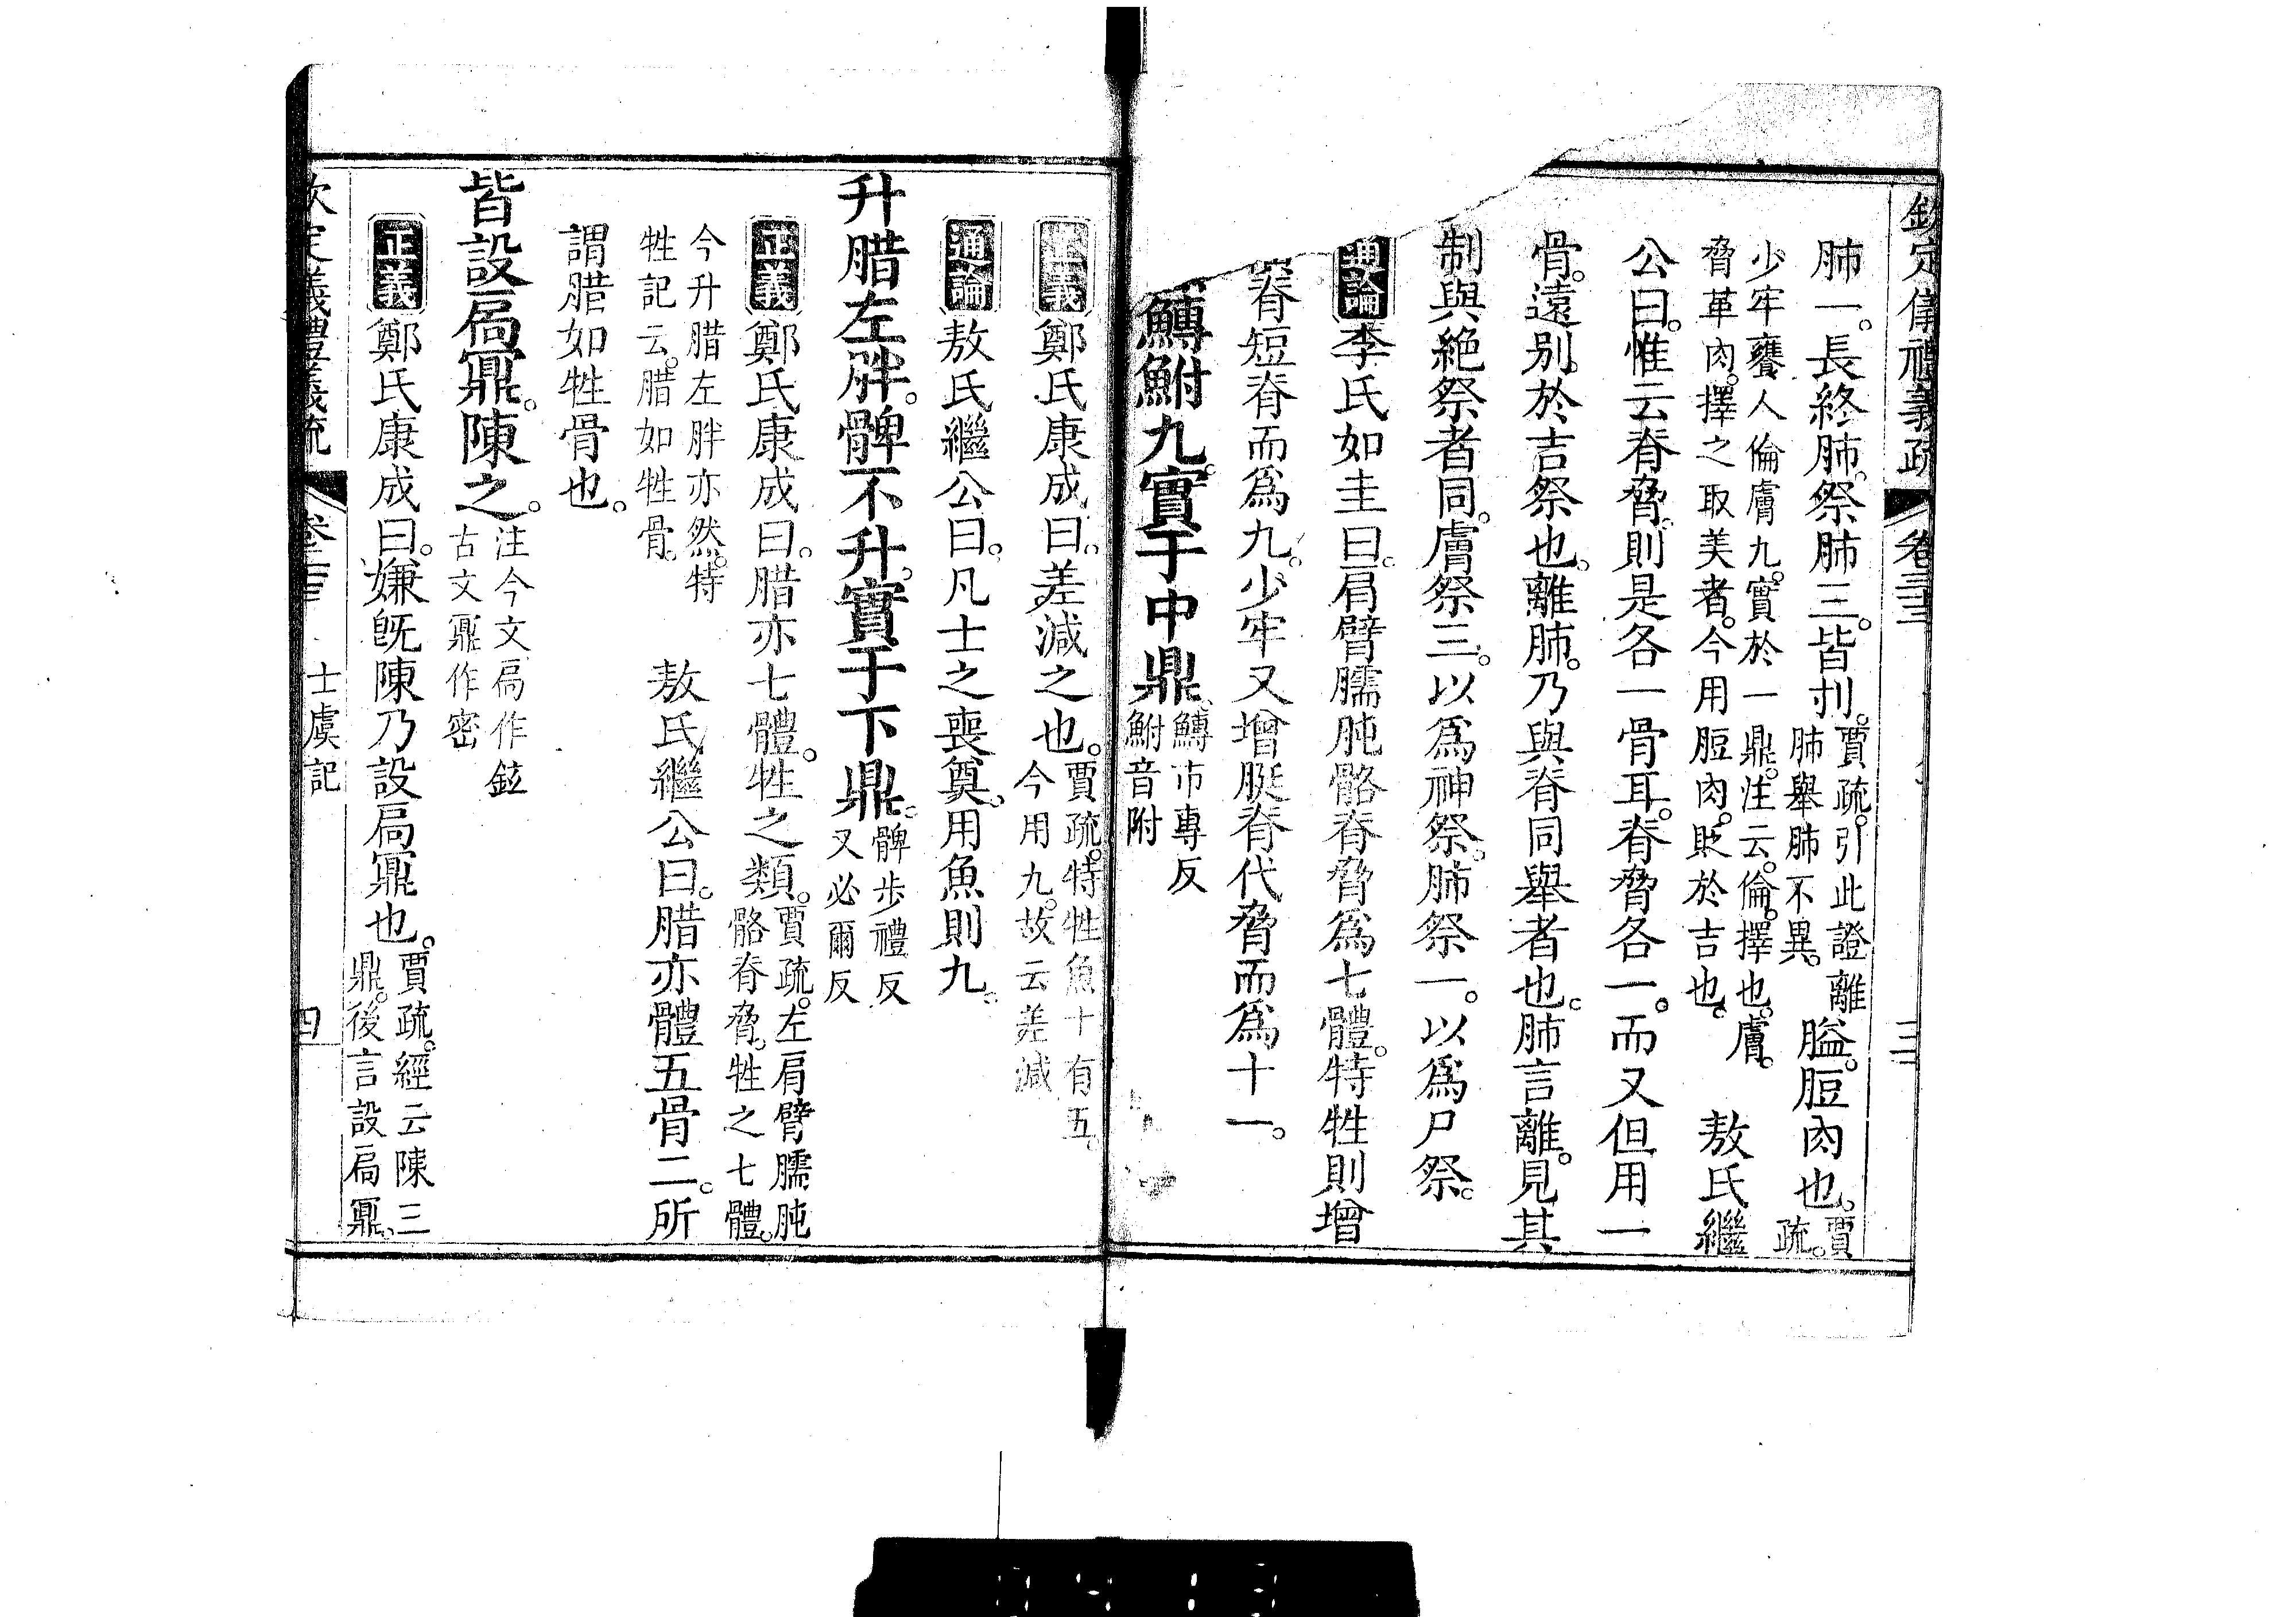 欽定儀禮義疏 卷三十三 三
肺一。長終肺。祭肺三。皆刌。賈疏。引此證離肺舉肺不異。膉。脰肉也。賈疏。
少牢饔人倫膚九。實於一鼎。注云。倫。擇也。膚。脅革肉。擇之取美者。今用脰肉。貶於吉也。 敖氏繼
公曰。惟云脊脅。則是各一骨耳。脊脅各一。而又但用一
骨。遠别於吉祭也。離肺。乃與脊同舉者也。肺言離。見其
制與絶祭者同。膚祭三。以爲神祭。肺祭一。以爲尸祭。
通論李氏如圭曰。肩臂臑肫骼脊脅爲七體。特牲則增
脊短脊而爲九。少牢又增脡脊代脅而爲十一。
鱄鮒九。實于中鼎。鱄市專反鮒音附
正義鄭氏康成曰。差減之也。賈疏。特牲魚十有五。今用九。故云差減
通論敖氏繼公曰。凡士之喪奠。用魚則九。
升腊左胖。髀不升。實于下鼎。髀步禮反又必爾反
正義鄭氏康成曰。腊亦七體。牲之類。賈疏。左肩臂臑肫骼脊脅。牲之七體。
今升腊左胖亦然。特牲記云。腊如牲骨。 敖氏繼公曰。腊亦體五骨二。所
謂腊如牲骨也。
皆設扃鼏。陳之。注今文扃作鉉古文鼏作密
正義鄭氏康成曰。嫌旣陳乃設扃鼏也。賈疏。經云陳三鼎。後言設扃鼏。
欽定義禮義疏 卷三十三 士虞記 四